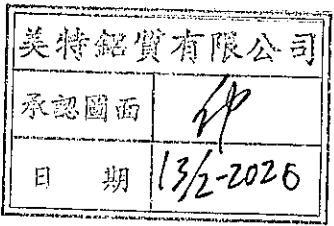 美特鋁質有限公司
承認圖面
日 期 13/2-2026